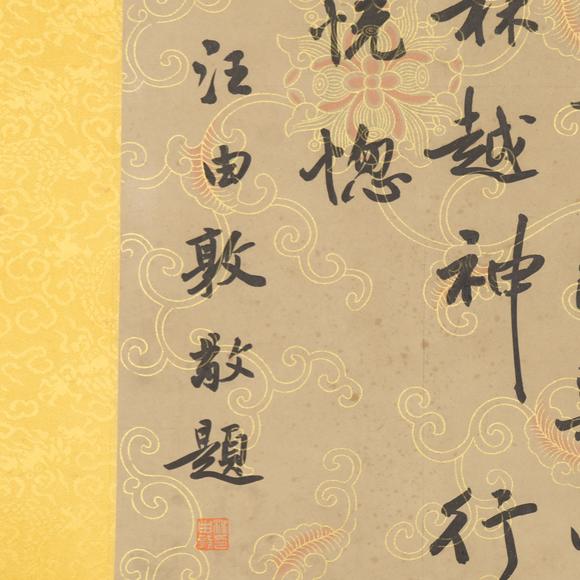 越神行
恍惚
汪由敦敬題